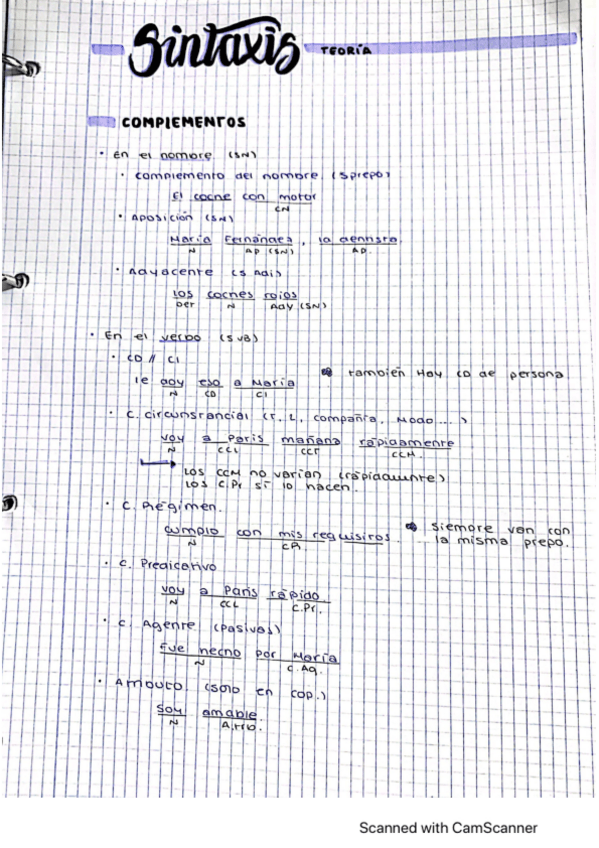 Sintaxis TEORÍA
COMPLEMENTOS
• En el nombre (SN)
• complemento del nombre (Sprepo)
El coche con motor
CN
• Aposición (SN)
María Fernández, la dentista.
N AP (SN) AP.
• Adyacente (S Adj)
los coches rojos
Det N Ady (SN)
• En el verbo (SVB)
• CD // CI
le doy eso a María
N CD CI
también hay CD de persona
• C. Circunstancial (T, L, compañía, Modo....)
voy a París mañana rápidamente
N CCL CCT CCM.
LOS CCM no varían (rápidamente)
LOS C.Pr sí lo hacen.
• C. Régimen.
cumplo con mis requisitos.
N CR.
Siempre van con
la misma prepo.
• C. Predicativo
voy a París rápido.
N CCL C.Pr.
• C. Agente (pasivas)
Fue hecho por María
N C.Ag.
• Atributo. (solo en cop.)
Soy amable.
N Atrib.
Scanned with CamScanner